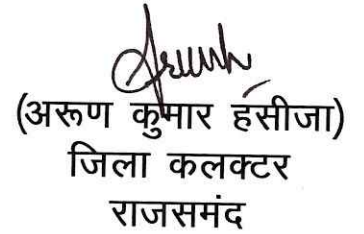 (अरूण कुमार हंसीजा)
जिला कलक्टर
राजसमंद